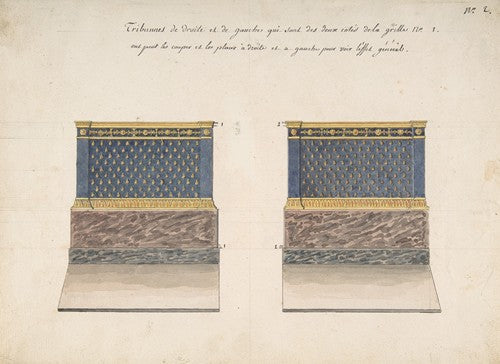 Nº. 2.
Tribunnes de droite et de gauche qui sont des deux cotés de la grille Nº. 1.
ont peut les couper et les placer à droite et a gauche pour voir l'effet général.
1 2
1 2